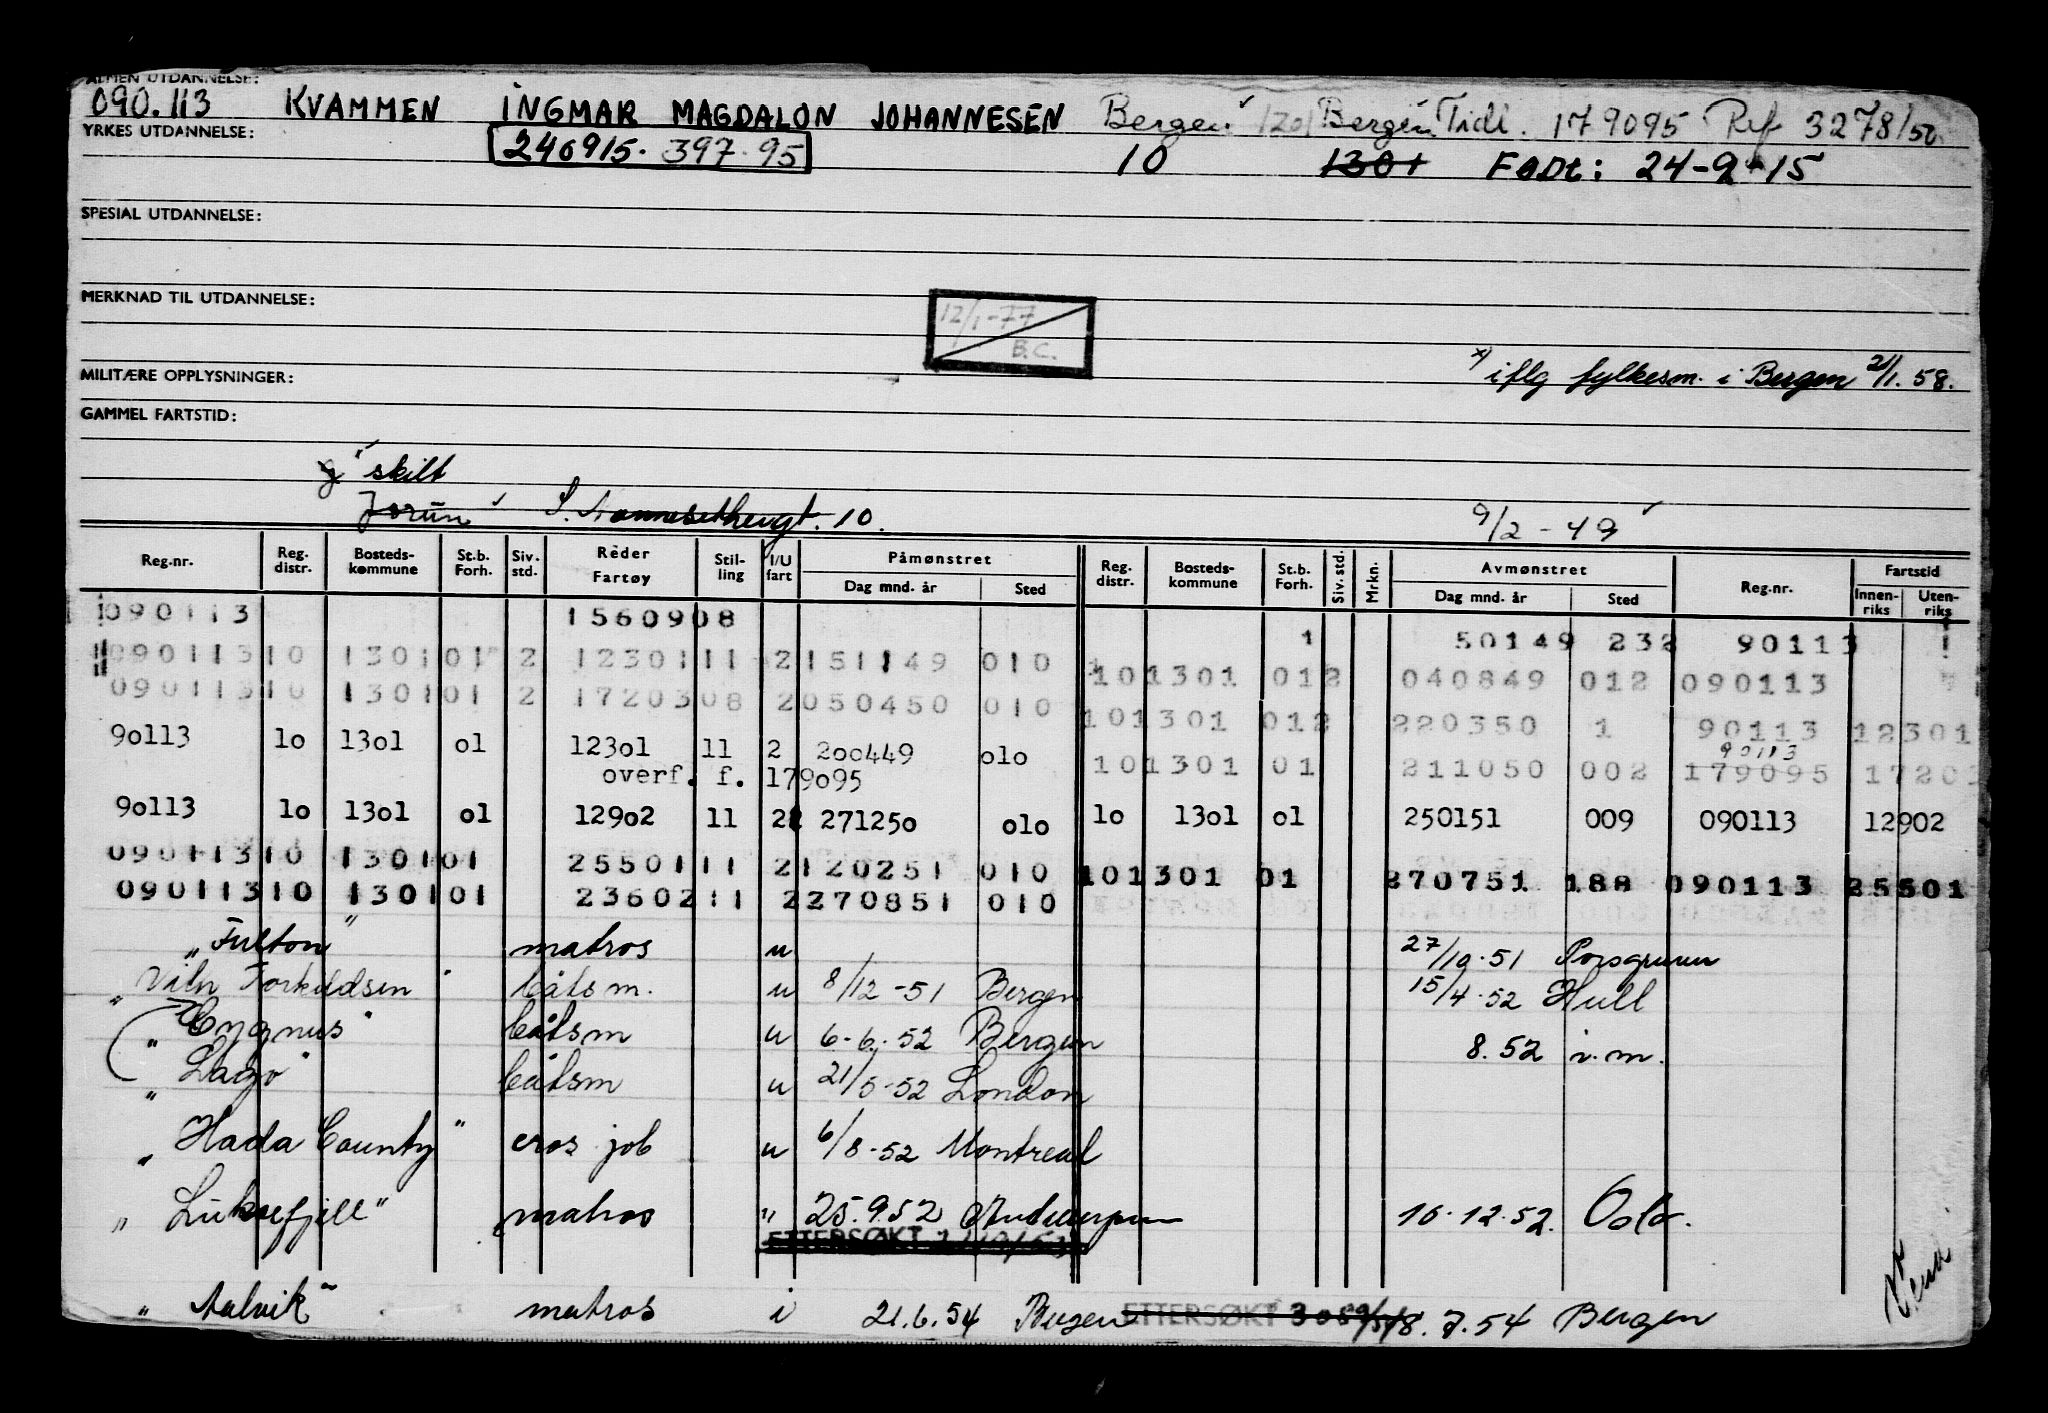 ALMEN UTDANNELSE:
090.113 KVAMMEN INGMAR MAGDALON JOHANNESEN Bergen 1201 Bergen Tidl. 179095 Ref 3278/50
YRKES UTDANNELSE: 240915. 397.95 10 1301 FØDt: 24-9-15
SPESIAL UTDANNELSE:
MERKNAD TIL UTDANNELSE:
12/1-77
B.C.
MILITÆRE OPPLYSNINGER: x) iflg fylkesm. i Bergen 21/1.58.
GAMMEL FARTSTID:
g skilt
Jorun 10. 9/2-49
Reg.nr. Reg. distr. Bosteds-kommune St.b. Forh. Siv. std. Reder Fartøy Stil-ling I/U fart Påmønstret Dag mnd. år Sted Reg. distr. Bosteds-kommune St.b. Forh. Siv. std. Mrkn. Avmønstret Dag mnd. år Sted Reg.nr. Fartstid Innen-riks Uten-riks
090113 1560908
1 50149 232 90113
09011310 130101 2 1230111 2151149 010
101301 012 040849 012 090113
09011310 130101 2 1720308 2050450 010
101301 012 220350 1 90113 12301
90113 10 1301 01 12301 11 2 200449 010
90113
overf. f. 179095 101301 01 211050 002 179095 1720
90113 10 1301 01 12902 11 2 271250 010 10 1301 01 250151 009 090113 12902
09011310 130101 2550111 2120251 010 101301 01 270751 188 090113 25501
09011310 130101 2360211 2270851 010
"Fulton" matros u 27/10-51 Porsgrunn
"Viln Torkildsen" båtsm. u 8/12-51 Bergen 15/4-52 Hull
"Cygnus" båtsm u 6-6-52 Bergen 8.52 i.m.
"Lago" båtsm u 21/5-52 London
"Hada County" eros job u 6/8-52 Montreal
"Luksefjell" matros " 25.9.52 Antwerpen 16.12.52. Oslo.
ETTERSØKT
"Aalvik" matros i 21.6.54 Bergen ETTERSØKT 18.7.54 Bergen